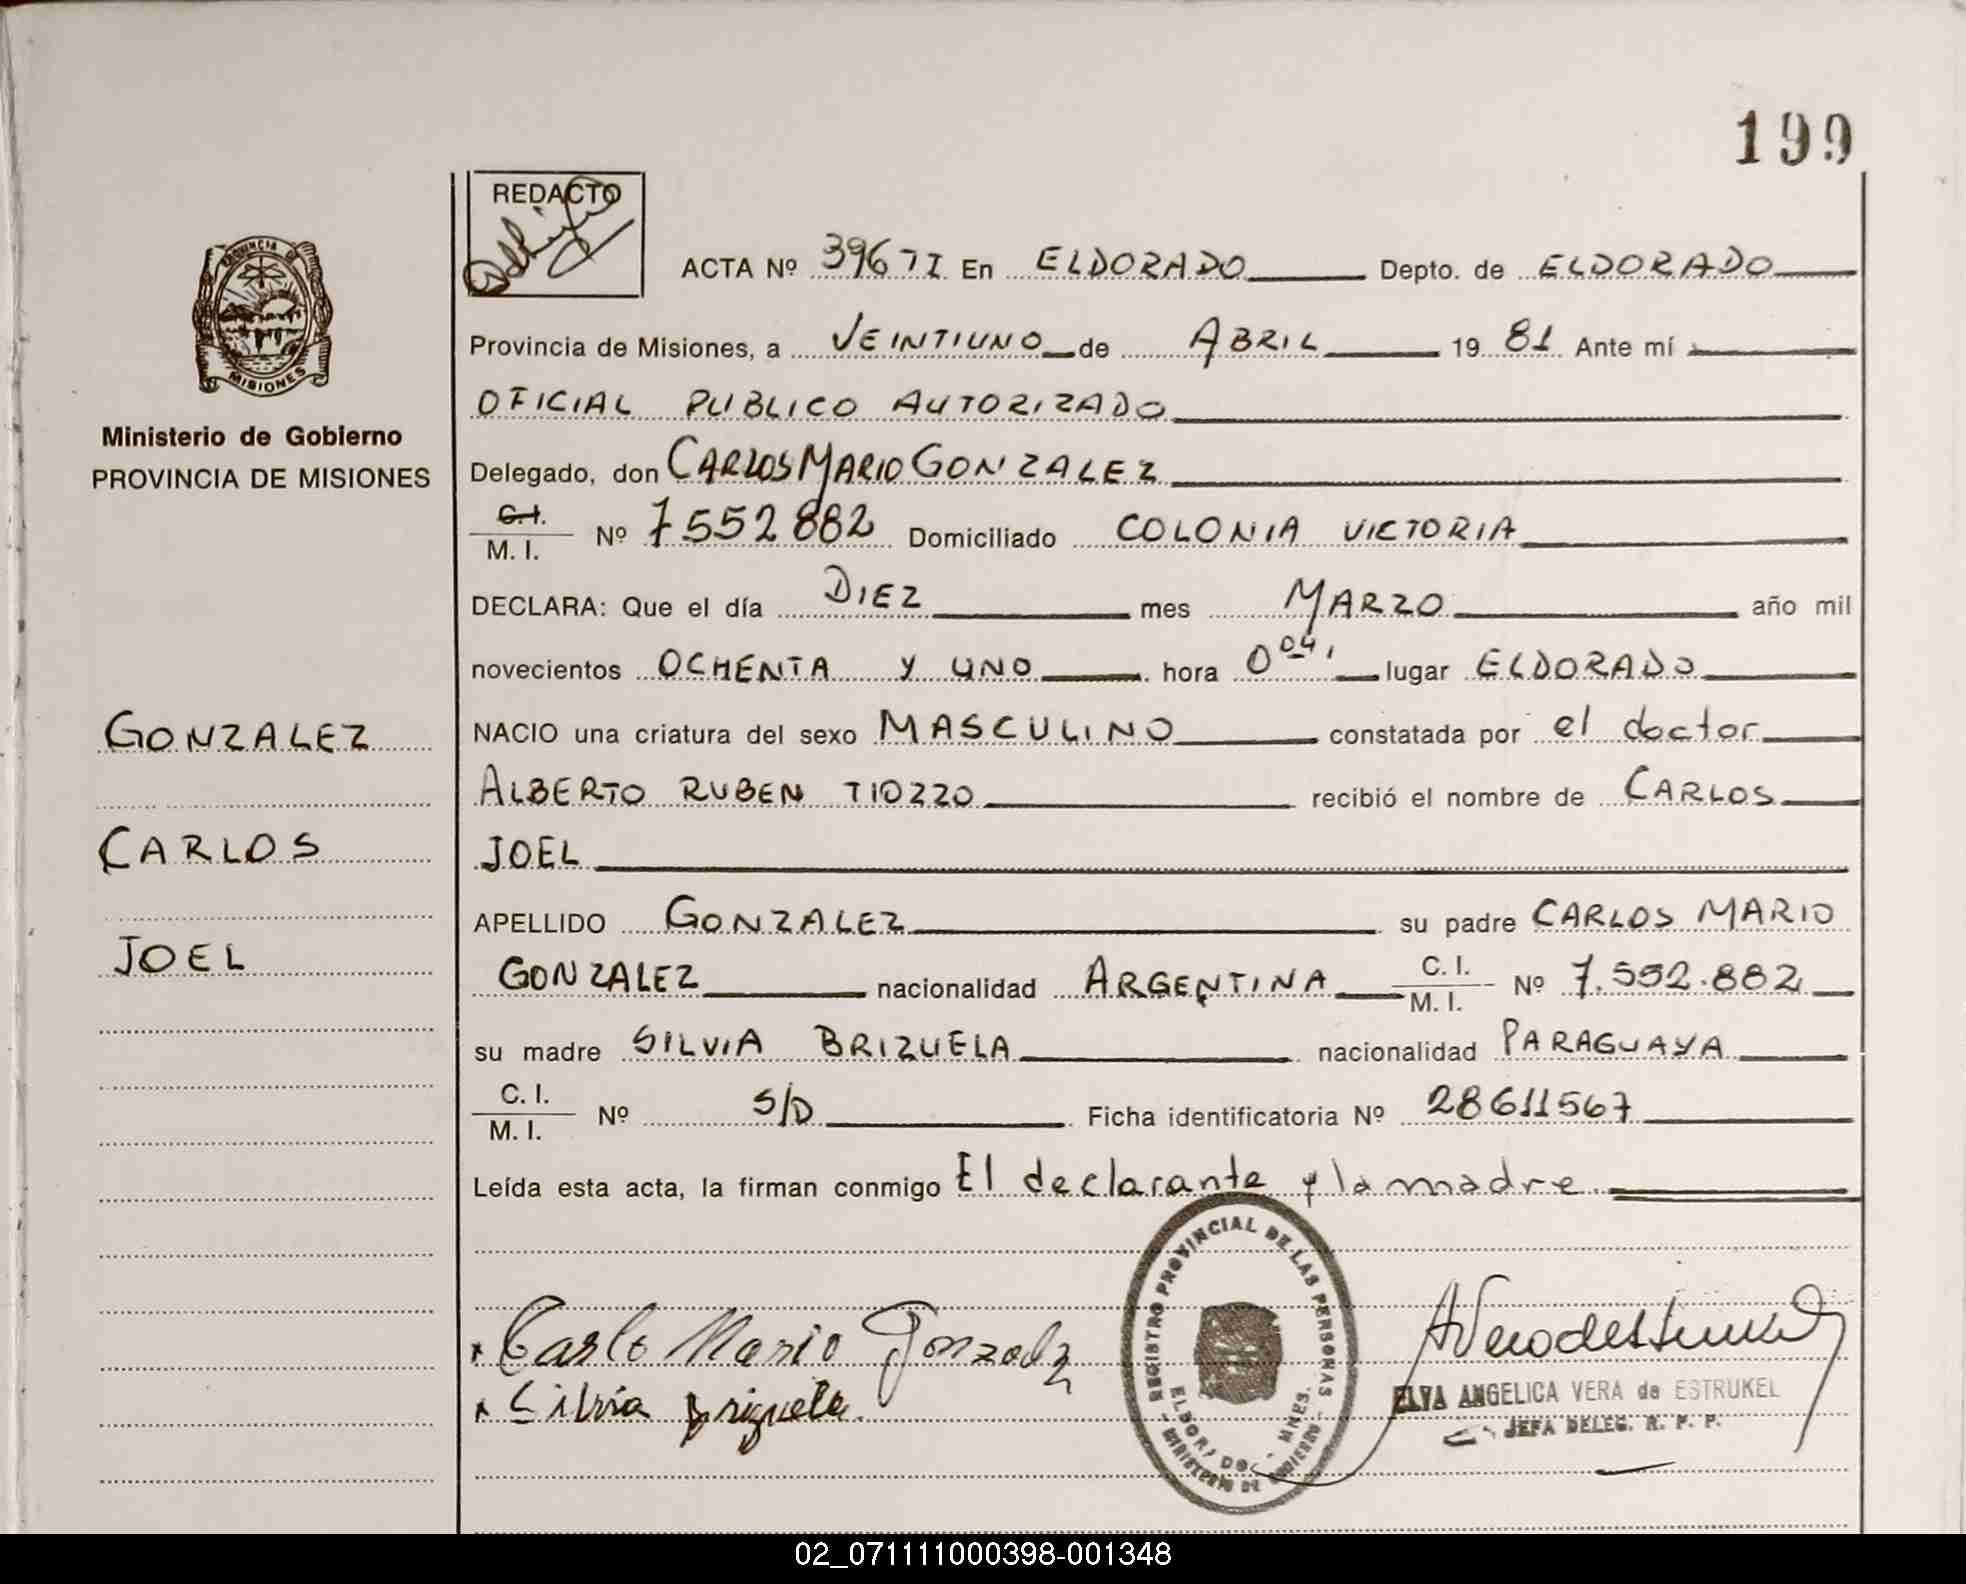 199
REDACTO
ACTA Nº 396 TI En ELDORADO Depto. de ELDORADO
Provincia de Misiones, a VEINTIUNO de ABRIL 19 81 Ante mí
OFICIAL PUBLICO AUTORIZADO
Ministerio de Gobierno
PROVINCIA DE MISIONES
Delegado, don CARLOS MARIO GONZALEZ
C.I. M. I. Nº 7552882 Domiciliado COLONIA VICTORIA
DECLARA: Que el día DIEZ mes MARZO año mil
novecientos OCHENTA Y UNO hora 0 04, lugar ELDORADO
GONZALEZ
NACIO una criatura del sexo MASCULINO constatada por el doctor
ALBERTO RUBEN TIOZZO recibió el nombre de CARLOS
CARLOS
JOEL
APELLIDO GONZALEZ su padre CARLOS MARIO
JOEL
GONZALEZ nacionalidad ARGENTINA C. I. M. I. Nº 7.552.882
su madre SILVIA BRIZUELA nacionalidad PARAGUAYA
C. I. M. I. Nº S/D Ficha identificatoria Nº 28611567
Leída esta acta, la firman conmigo El declarante y la madre
REGISTRO PROVINCIAL DE LAS PERSONAS
ELDORADO - MNES.
MINISTERIO DE GOBIERNO
MISIONES
PROVINCIA DE
Carlo Mario Gonzalz
Silvia Brizuela
ELVA ANGELICA VERA de ESTRUKEL
JEFA DELEG. R. P. P.
02_071111000398-001348